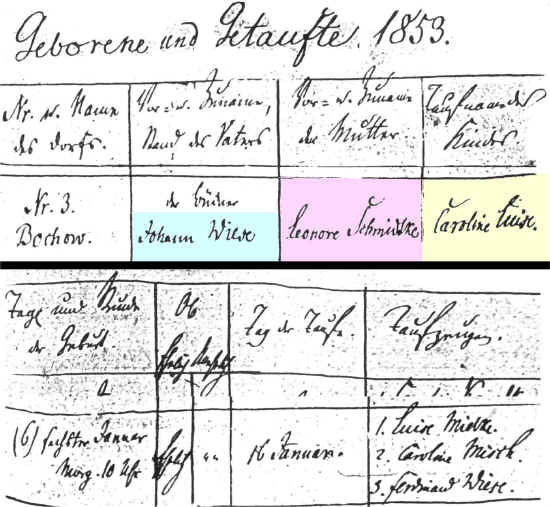 Geborene und Getaufte. 1853.
Nr. u. Name
des Dorfs.
Vor= u. Zuname,
Stand des Vaters
Vor= u. Zuname
der Mutter.
Taufname des
Kindes
Nr. 3.
Bochow.
der Büdner
Johann Wiese
Leonore Schmidtke
Caroline Luise.
Tag und Stunde
der Geburt.
Ob
Ehelich Unehelich
Tag der Taufe.
Taufzeugen.
(6) sechster Januar
Morg. 10 Uhr
Ehelich
"
16 Januar.
1. Luise
2. Caroline
3. Ferdinand Wiese.